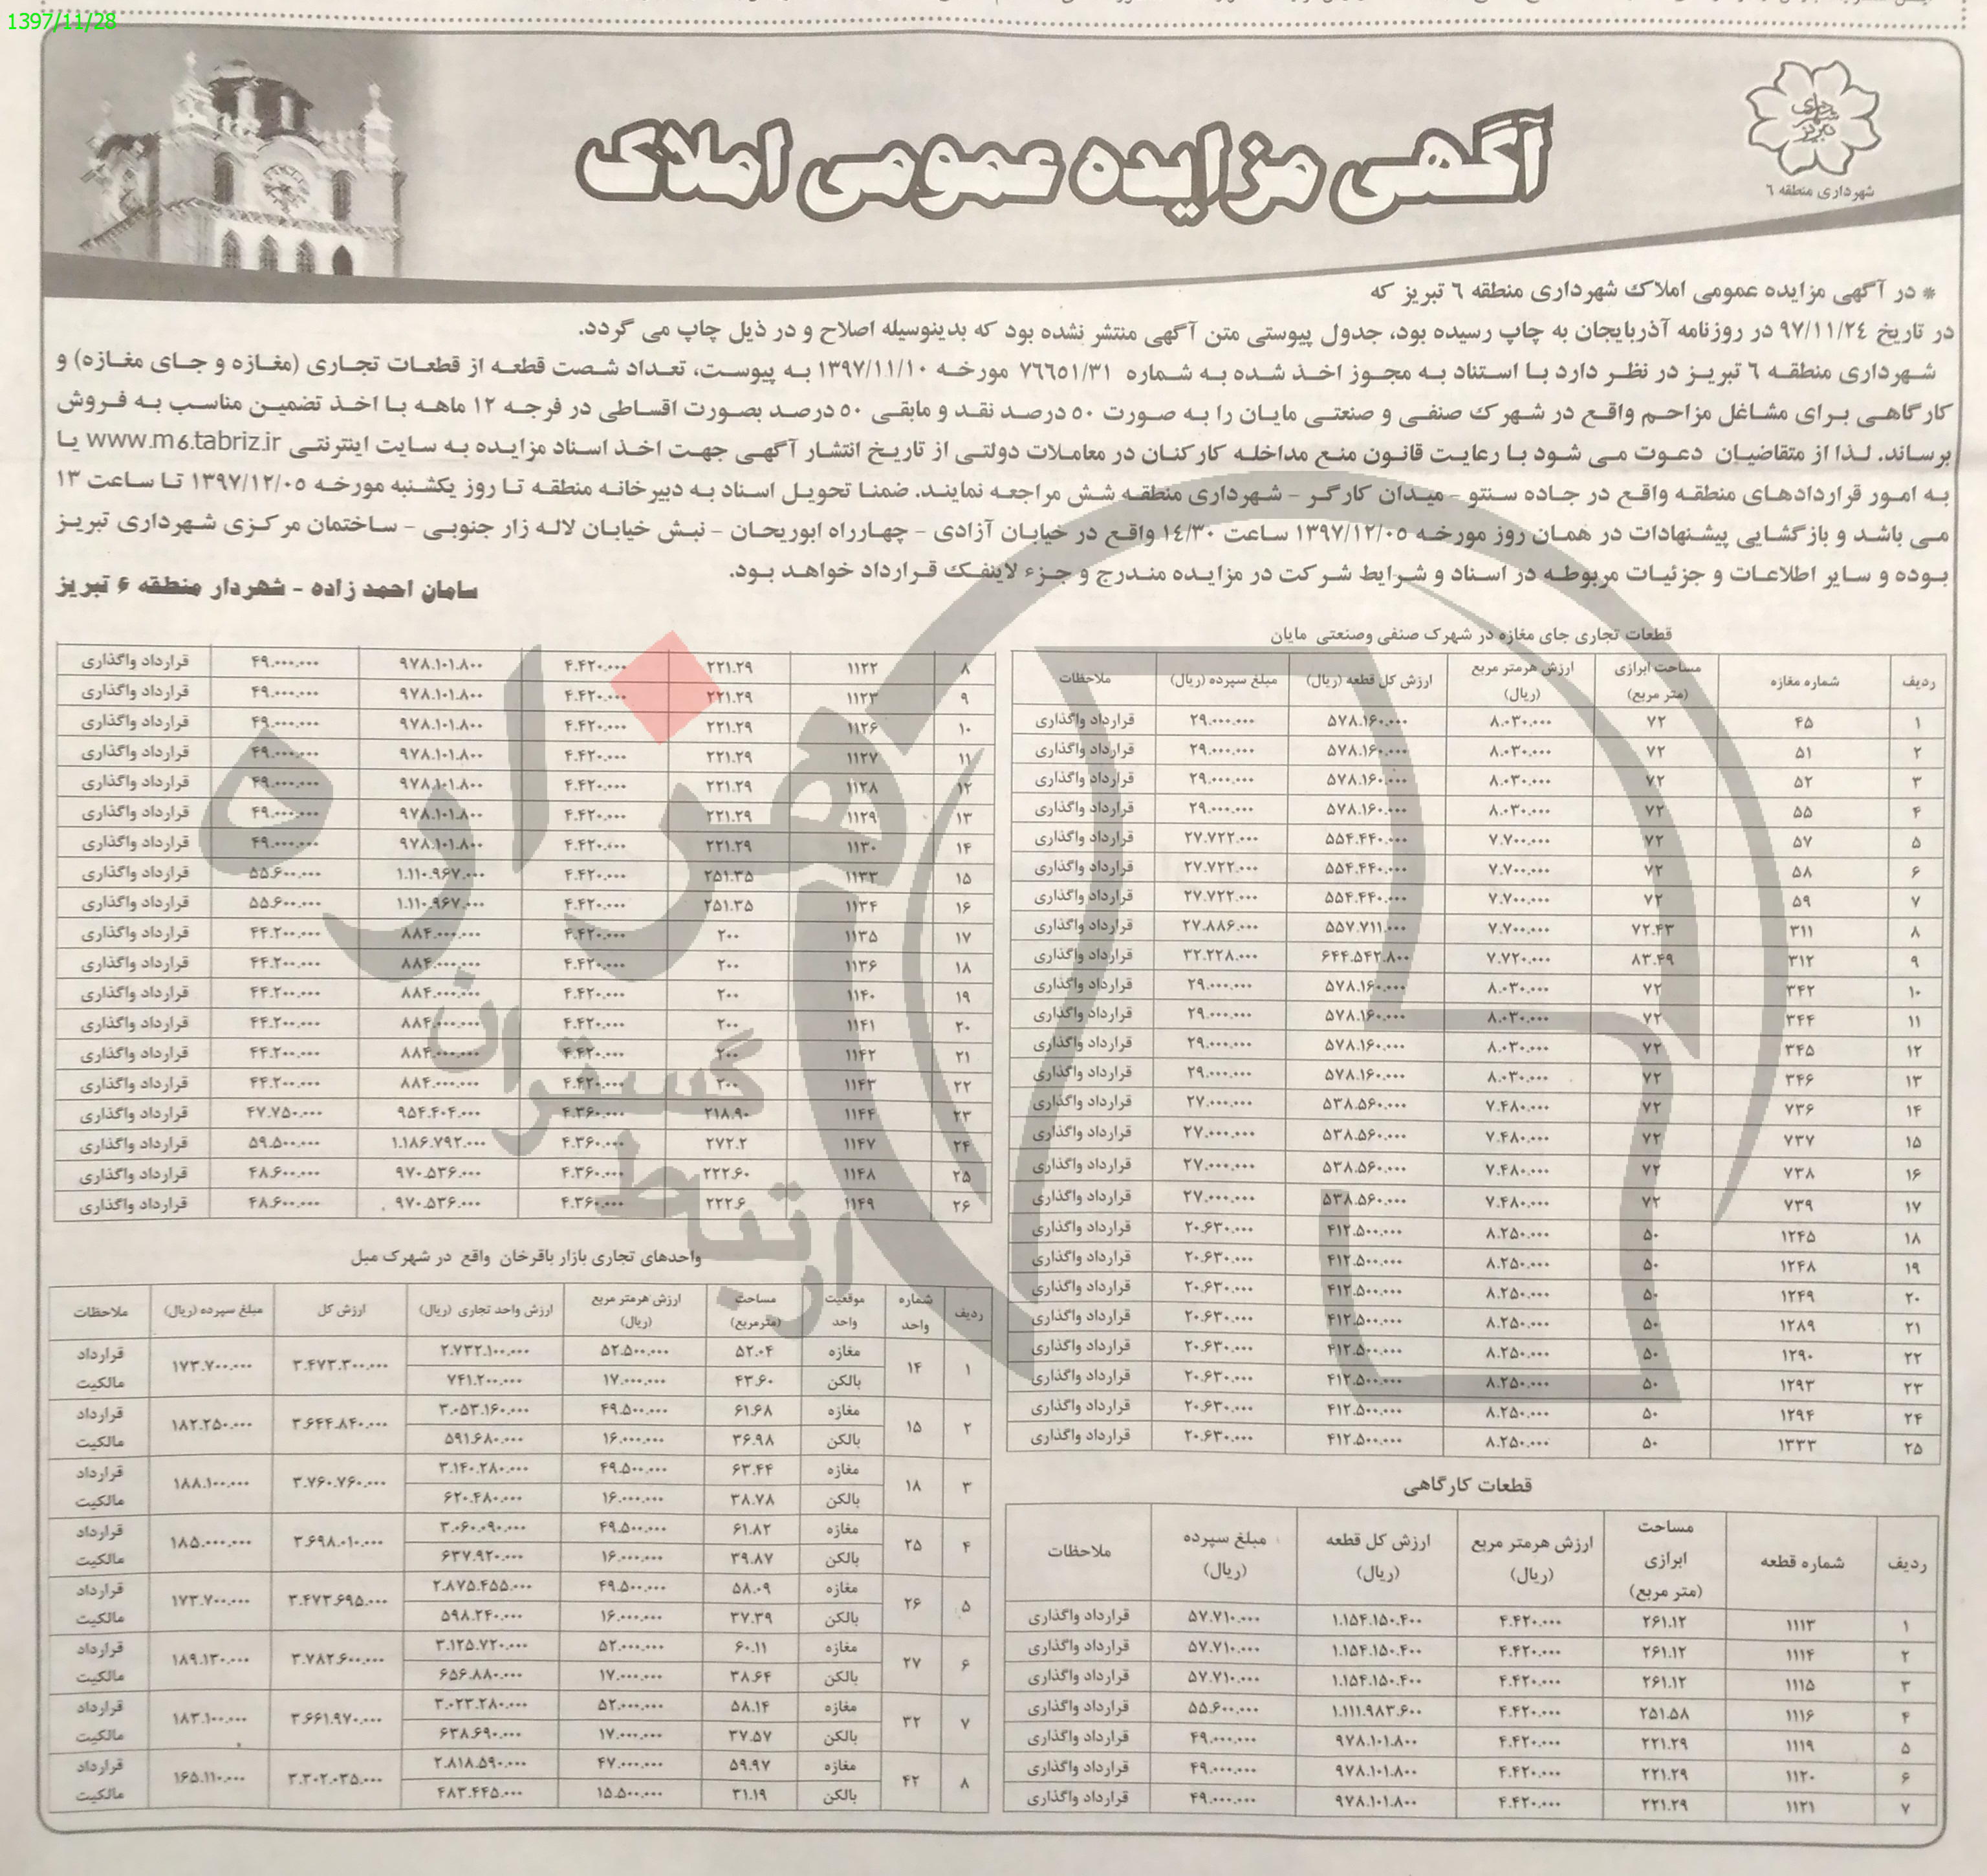 1397/11/28
شهرداری تبریز
شهرداری منطقه ٦
آگهی مزایده عمومی املاک
* در آگهی مزایده عمومی املاک شهرداری منطقه ٦ تبریز که
در تاریخ ٩٧/١١/٢٤ در روزنامه آذربایجان به چاپ رسیده بود، جدول پیوستی متن آگهی منتشر نشده بود که بدینوسیله اصلاح و در ذیل چاپ می گردد.
شهرداری منطقه ٦ تبریز در نظر دارد با استناد به مجوز اخذ شده به شماره ٧٦٦٥١/٣١ مورخه ١٣٩٧/١١/١٠ به پیوست، تعداد شصت قطعه از قطعات تجاری (مغازه و جای مغازه) و
کارگاهی برای مشاغل مزاحم واقع در شهرک صنفی و صنعتی مایان را به صورت ٥٠ درصد نقد و مابقی ٥٠ درصد بصورت اقساطی در فرجه ١٢ ماهه با اخذ تضمین مناسب به فروش
برساند. لذا از متقاضیان دعوت می شود با رعایت قانون منع مداخله کارکنان در معاملات دولتی از تاریخ انتشار آگهی جهت اخذ اسناد مزایده به سایت اینترنتی www.m6.tabriz.ir یا
به امور قراردادهای منطقه واقع در جاده سنتو - میدان کارگر - شهرداری منطقه شش مراجعه نمایند. ضمنا تحویل اسناد به دبیرخانه منطقه تا روز یکشنبه مورخه ١٣٩٧/١٢/٠٥ تا ساعت ١٣
می باشد و بازگشایی پیشنهادات در همان روز مورخه ١٣٩٧/١٢/٠٥ ساعت ١٤/٣٠ واقع در خیابان آزادی - چهارراه ابوریحان - نبش خیابان لاله زار جنوبی - ساختمان مرکزی شهرداری تبریز
بوده و سایر اطلاعات و جزئیات مربوطه در اسناد و شرایط شرکت در مزایده مندرج و جزء لاینفک قرارداد خواهد بود.
سامان احمد زاده - شهردار منطقه ۶ تبریز
قطعات تجاری جای مغازه در شهرک صنفی وصنعتی مایان
ردیف شماره مغازه مساحت ابرازی (متر مربع) ارزش هرمتر مربع (ریال) ارزش کل قطعه (ریال) مبلغ سپرده (ریال) ملاحظات
۱ ۴۵ ۷۲ ۸.۰۳۰.۰۰۰ ۵۷۸.۱۶۰.۰۰۰ ۲۹.۰۰۰.۰۰۰ قرارداد واگذاری
۲ ۵۱ ۷۲ ۸.۰۳۰.۰۰۰ ۵۷۸.۱۶۰.۰۰۰ ۲۹.۰۰۰.۰۰۰ قرارداد واگذاری
۳ ۵۲ ۷۲ ۸.۰۳۰.۰۰۰ ۵۷۸.۱۶۰.۰۰۰ ۲۹.۰۰۰.۰۰۰ قرارداد واگذاری
۴ ۵۵ ۷۲ ۸.۰۳۰.۰۰۰ ۵۷۸.۱۶۰.۰۰۰ ۲۹.۰۰۰.۰۰۰ قرارداد واگذاری
۵ ۵۷ ۷۲ ۷.۷۰۰.۰۰۰ ۵۵۴.۴۴۰.۰۰۰ ۲۷.۷۲۲.۰۰۰ قرارداد واگذاری
۶ ۵۸ ۷۲ ۷.۷۰۰.۰۰۰ ۵۵۴.۴۴۰.۰۰۰ ۲۷.۷۲۲.۰۰۰ قرارداد واگذاری
۷ ۵۹ ۷۲ ۷.۷۰۰.۰۰۰ ۵۵۴.۴۴۰.۰۰۰ ۲۷.۷۲۲.۰۰۰ قرارداد واگذاری
۸ ۳۱۱ ۷۲.۴۳ ۷.۷۰۰.۰۰۰ ۵۵۷.۷۱۱.۰۰۰ ۲۷.۸۸۶.۰۰۰ قرارداد واگذاری
۹ ۳۱۲ ۸۳.۴۹ ۷.۷۲۰.۰۰۰ ۶۴۴.۵۴۲.۸۰۰ ۳۲.۲۲۸.۰۰۰ قرارداد واگذاری
۱۰ ۳۴۲ ۷۲ ۸.۰۳۰.۰۰۰ ۵۷۸.۱۶۰.۰۰۰ ۲۹.۰۰۰.۰۰۰ قرارداد واگذاری
۱۱ ۳۴۴ ۷۲ ۸.۰۳۰.۰۰۰ ۵۷۸.۱۶۰.۰۰۰ ۲۹.۰۰۰.۰۰۰ قرارداد واگذاری
۱۲ ۳۴۵ ۷۲ ۸.۰۳۰.۰۰۰ ۵۷۸.۱۶۰.۰۰۰ ۲۹.۰۰۰.۰۰۰ قرارداد واگذاری
۱۳ ۳۴۶ ۷۲ ۸.۰۳۰.۰۰۰ ۵۷۸.۱۶۰.۰۰۰ ۲۹.۰۰۰.۰۰۰ قرارداد واگذاری
۱۴ ۷۳۶ ۷۲ ۷.۴۸۰.۰۰۰ ۵۳۸.۵۶۰.۰۰۰ ۲۷.۰۰۰.۰۰۰ قرارداد واگذاری
۱۵ ۷۳۷ ۷۲ ۷.۴۸۰.۰۰۰ ۵۳۸.۵۶۰.۰۰۰ ۲۷.۰۰۰.۰۰۰ قرارداد واگذاری
۱۶ ۷۳۸ ۷۲ ۷.۴۸۰.۰۰۰ ۵۳۸.۵۶۰.۰۰۰ ۲۷.۰۰۰.۰۰۰ قرارداد واگذاری
۱۷ ۷۳۹ ۷۲ ۷.۴۸۰.۰۰۰ ۵۳۸.۵۶۰.۰۰۰ ۲۷.۰۰۰.۰۰۰ قرارداد واگذاری
۱۸ ۱۲۴۵ ۵۰ ۸.۲۵۰.۰۰۰ ۴۱۲.۵۰۰.۰۰۰ ۲۰.۶۳۰.۰۰۰ قرارداد واگذاری
۱۹ ۱۲۴۸ ۵۰ ۸.۲۵۰.۰۰۰ ۴۱۲.۵۰۰.۰۰۰ ۲۰.۶۳۰.۰۰۰ قرارداد واگذاری
۲۰ ۱۲۴۹ ۵۰ ۸.۲۵۰.۰۰۰ ۴۱۲.۵۰۰.۰۰۰ ۲۰.۶۳۰.۰۰۰ قرارداد واگذاری
۲۱ ۱۲۸۹ ۵۰ ۸.۲۵۰.۰۰۰ ۴۱۲.۵۰۰.۰۰۰ ۲۰.۶۳۰.۰۰۰ قرارداد واگذاری
۲۲ ۱۲۹۰ ۵۰ ۸.۲۵۰.۰۰۰ ۴۱۲.۵۰۰.۰۰۰ ۲۰.۶۳۰.۰۰۰ قرارداد واگذاری
۲۳ ۱۲۹۳ ۵۰ ۸.۲۵۰.۰۰۰ ۴۱۲.۵۰۰.۰۰۰ ۲۰.۶۳۰.۰۰۰ قرارداد واگذاری
۲۴ ۱۲۹۴ ۵۰ ۸.۲۵۰.۰۰۰ ۴۱۲.۵۰۰.۰۰۰ ۲۰.۶۳۰.۰۰۰ قرارداد واگذاری
۲۵ ۱۳۳۳ ۵۰ ۸.۲۵۰.۰۰۰ ۴۱۲.۵۰۰.۰۰۰ ۲۰.۶۳۰.۰۰۰ قرارداد واگذاری
قطعات کارگاهی
ردیف شماره قطعه مساحت ابرازی (متر مربع) ارزش هرمتر مربع (ریال) ارزش کل قطعه (ریال) مبلغ سپرده (ریال) ملاحظات
۱ ۱۱۱۳ ۲۶۱.۱۲ ۴.۴۲۰.۰۰۰ ۱.۱۵۴.۱۵۰.۴۰۰ ۵۷.۷۱۰.۰۰۰ قرارداد واگذاری
۲ ۱۱۱۴ ۲۶۱.۱۲ ۴.۴۲۰.۰۰۰ ۱.۱۵۴.۱۵۰.۴۰۰ ۵۷.۷۱۰.۰۰۰ قرارداد واگذاری
۳ ۱۱۱۵ ۲۶۱.۱۲ ۴.۴۲۰.۰۰۰ ۱.۱۵۴.۱۵۰.۴۰۰ ۵۷.۷۱۰.۰۰۰ قرارداد واگذاری
۴ ۱۱۱۶ ۲۵۱.۵۸ ۴.۴۲۰.۰۰۰ ۱.۱۱۱.۹۸۳.۶۰۰ ۵۵.۶۰۰.۰۰۰ قرارداد واگذاری
۵ ۱۱۱۹ ۲۲۱.۲۹ ۴.۴۲۰.۰۰۰ ۹۷۸.۱۰۱.۸۰۰ ۴۹.۰۰۰.۰۰۰ قرارداد واگذاری
۶ ۱۱۲۰ ۲۲۱.۲۹ ۴.۴۲۰.۰۰۰ ۹۷۸.۱۰۱.۸۰۰ ۴۹.۰۰۰.۰۰۰ قرارداد واگذاری
۷ ۱۱۲۱ ۲۲۱.۲۹ ۴.۴۲۰.۰۰۰ ۹۷۸.۱۰۱.۸۰۰ ۴۹.۰۰۰.۰۰۰ قرارداد واگذاری
۸ ۱۱۲۲ ۲۲۱.۲۹ ۴.۴۲۰.۰۰۰ ۹۷۸.۱۰۱.۸۰۰ ۴۹.۰۰۰.۰۰۰ قرارداد واگذاری
۹ ۱۱۲۳ ۲۲۱.۲۹ ۴.۴۲۰.۰۰۰ ۹۷۸.۱۰۱.۸۰۰ ۴۹.۰۰۰.۰۰۰ قرارداد واگذاری
۱۰ ۱۱۲۶ ۲۲۱.۲۹ ۴.۴۲۰.۰۰۰ ۹۷۸.۱۰۱.۸۰۰ ۴۹.۰۰۰.۰۰۰ قرارداد واگذاری
۱۱ ۱۱۲۷ ۲۲۱.۲۹ ۴.۴۲۰.۰۰۰ ۹۷۸.۱۰۱.۸۰۰ ۴۹.۰۰۰.۰۰۰ قرارداد واگذاری
۱۲ ۱۱۲۸ ۲۲۱.۲۹ ۴.۴۲۰.۰۰۰ ۹۷۸.۱۰۱.۸۰۰ ۴۹.۰۰۰.۰۰۰ قرارداد واگذاری
۱۳ ۱۱۲۹ ۲۲۱.۲۹ ۴.۴۲۰.۰۰۰ ۹۷۸.۱۰۱.۸۰۰ ۴۹.۰۰۰.۰۰۰ قرارداد واگذاری
۱۴ ۱۱۳۰ ۲۲۱.۲۹ ۴.۴۲۰.۰۰۰ ۹۷۸.۱۰۱.۸۰۰ ۴۹.۰۰۰.۰۰۰ قرارداد واگذاری
۱۵ ۱۱۳۳ ۲۵۱.۳۵ ۴.۴۲۰.۰۰۰ ۱.۱۱۰.۹۶۷.۰۰۰ ۵۵.۶۰۰.۰۰۰ قرارداد واگذاری
۱۶ ۱۱۳۴ ۲۵۱.۳۵ ۴.۴۲۰.۰۰۰ ۱.۱۱۰.۹۶۷.۰۰۰ ۵۵.۶۰۰.۰۰۰ قرارداد واگذاری
۱۷ ۱۱۳۵ ۲۰۰ ۴.۴۲۰.۰۰۰ ۸۸۴.۰۰۰.۰۰۰ ۴۴.۲۰۰.۰۰۰ قرارداد واگذاری
۱۸ ۱۱۳۶ ۲۰۰ ۴.۴۲۰.۰۰۰ ۸۸۴.۰۰۰.۰۰۰ ۴۴.۲۰۰.۰۰۰ قرارداد واگذاری
۱۹ ۱۱۴۰ ۲۰۰ ۴.۴۲۰.۰۰۰ ۸۸۴.۰۰۰.۰۰۰ ۴۴.۲۰۰.۰۰۰ قرارداد واگذاری
۲۰ ۱۱۴۱ ۲۰۰ ۴.۴۲۰.۰۰۰ ۸۸۴.۰۰۰.۰۰۰ ۴۴.۲۰۰.۰۰۰ قرارداد واگذاری
۲۱ ۱۱۴۲ ۲۰۰ ۴.۴۲۰.۰۰۰ ۸۸۴.۰۰۰.۰۰۰ ۴۴.۲۰۰.۰۰۰ قرارداد واگذاری
۲۲ ۱۱۴۳ ۲۰۰ ۴.۴۲۰.۰۰۰ ۸۸۴.۰۰۰.۰۰۰ ۴۴.۲۰۰.۰۰۰ قرارداد واگذاری
۲۳ ۱۱۴۴ ۲۱۸.۹۰ ۴.۳۶۰.۰۰۰ ۹۵۴.۴۰۴.۰۰۰ ۴۷.۷۵۰.۰۰۰ قرارداد واگذاری
۲۴ ۱۱۴۷ ۲۷۲.۲ ۴.۳۶۰.۰۰۰ ۱.۱۸۶.۷۹۲.۰۰۰ ۵۹.۵۰۰.۰۰۰ قرارداد واگذاری
۲۵ ۱۱۴۸ ۲۲۲.۶۰ ۴.۳۶۰.۰۰۰ ۹۷۰.۵۳۶.۰۰۰ ۴۸.۶۰۰.۰۰۰ قرارداد واگذاری
۲۶ ۱۱۴۹ ۲۲۲.۶ ۴.۳۶۰.۰۰۰ ۹۷۰.۵۳۶.۰۰۰ ۴۸.۶۰۰.۰۰۰ قرارداد واگذاری
واحدهای تجاری بازار باقرخان واقع در شهرک مبل
ردیف شماره واحد موقعیت واحد مساحت (مترمربع) ارزش هرمتر مربع (ریال) ارزش واحد تجاری (ریال) ارزش کل مبلغ سپرده (ریال) ملاحظات
۱ ۱۴ مغازه ۵۲.۰۴ ۵۲.۵۰۰.۰۰۰ ۲.۷۳۲.۱۰۰.۰۰۰ ۳.۴۷۳.۳۰۰.۰۰۰ ۱۷۳.۷۰۰.۰۰۰ قرارداد مالکیت
بالکن ۴۳.۶۰ ۱۷.۰۰۰.۰۰۰ ۷۴۱.۲۰۰.۰۰۰
۲ ۱۵ مغازه ۶۱.۶۸ ۴۹.۵۰۰.۰۰۰ ۳.۰۵۳.۱۶۰.۰۰۰ ۳.۶۴۴.۸۴۰.۰۰۰ ۱۸۲.۲۵۰.۰۰۰ قرارداد مالکیت
بالکن ۳۶.۹۸ ۱۶.۰۰۰.۰۰۰ ۵۹۱.۶۸۰.۰۰۰
۳ ۱۸ مغازه ۶۳.۴۴ ۴۹.۵۰۰.۰۰۰ ۳.۱۴۰.۲۸۰.۰۰۰ ۳.۷۶۰.۷۶۰.۰۰۰ ۱۸۸.۱۰۰.۰۰۰ قرارداد مالکیت
بالکن ۳۸.۷۸ ۱۶.۰۰۰.۰۰۰ ۶۲۰.۴۸۰.۰۰۰
۴ ۲۵ مغازه ۶۱.۸۲ ۴۹.۵۰۰.۰۰۰ ۳.۰۶۰.۰۹۰.۰۰۰ ۳.۶۹۸.۰۱۰.۰۰۰ ۱۸۵.۰۰۰.۰۰۰ قرارداد مالکیت
بالکن ۳۹.۸۷ ۱۶.۰۰۰.۰۰۰ ۶۳۷.۹۲۰.۰۰۰
۵ ۲۶ مغازه ۵۸.۰۹ ۴۹.۵۰۰.۰۰۰ ۲.۸۷۵.۴۵۵.۰۰۰ ۳.۴۷۳.۶۹۵.۰۰۰ ۱۷۳.۷۰۰.۰۰۰ قرارداد مالکیت
بالکن ۳۷.۳۹ ۱۶.۰۰۰.۰۰۰ ۵۹۸.۲۴۰.۰۰۰
۶ ۲۷ مغازه ۶۰.۱۱ ۵۲.۰۰۰.۰۰۰ ۳.۱۲۵.۷۲۰.۰۰۰ ۳.۷۸۲.۶۰۰.۰۰۰ ۱۸۹.۱۳۰.۰۰۰ قرارداد مالکیت
بالکن ۳۸.۶۴ ۱۷.۰۰۰.۰۰۰ ۶۵۶.۸۸۰.۰۰۰
۷ ۳۲ مغازه ۵۸.۱۴ ۵۲.۰۰۰.۰۰۰ ۳.۰۲۳.۲۸۰.۰۰۰ ۳.۶۶۱.۹۷۰.۰۰۰ ۱۸۳.۱۰۰.۰۰۰ قرارداد مالکیت
بالکن ۳۷.۵۷ ۱۷.۰۰۰.۰۰۰ ۶۳۸.۶۹۰.۰۰۰
۸ ۴۲ مغازه ۵۹.۹۷ ۴۷.۰۰۰.۰۰۰ ۲.۸۱۸.۵۹۰.۰۰۰ ۳.۳۰۲.۰۳۵.۰۰۰ ۱۶۵.۱۱۰.۰۰۰ قرارداد مالکیت
بالکن ۳۱.۱۹ ۱۵.۵۰۰.۰۰۰ ۴۸۳.۴۴۵.۰۰۰
هزاره
ارتباط گستران